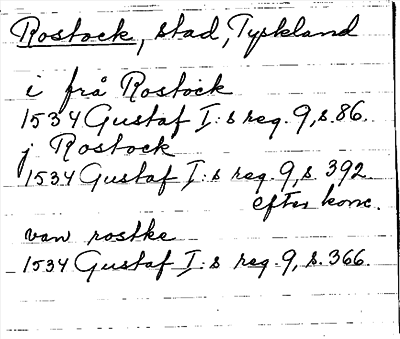 Rostock, stad, Tyskland
i från Rostock
1534 Gustaf I:s reg. 9, s. 86.
j Rostock
1534 Gustaf I:s reg. 9, s. 392
efter konc.
van rostke
1534 Gustaf I:s reg. 9, s. 366.